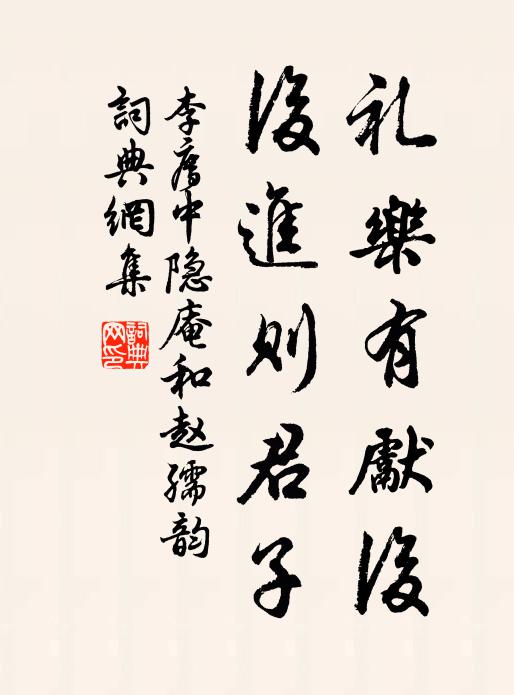 礼樂有獻後
後進則君子
李廌中隐庵和赵孺韵
詞典網集
詞典網印